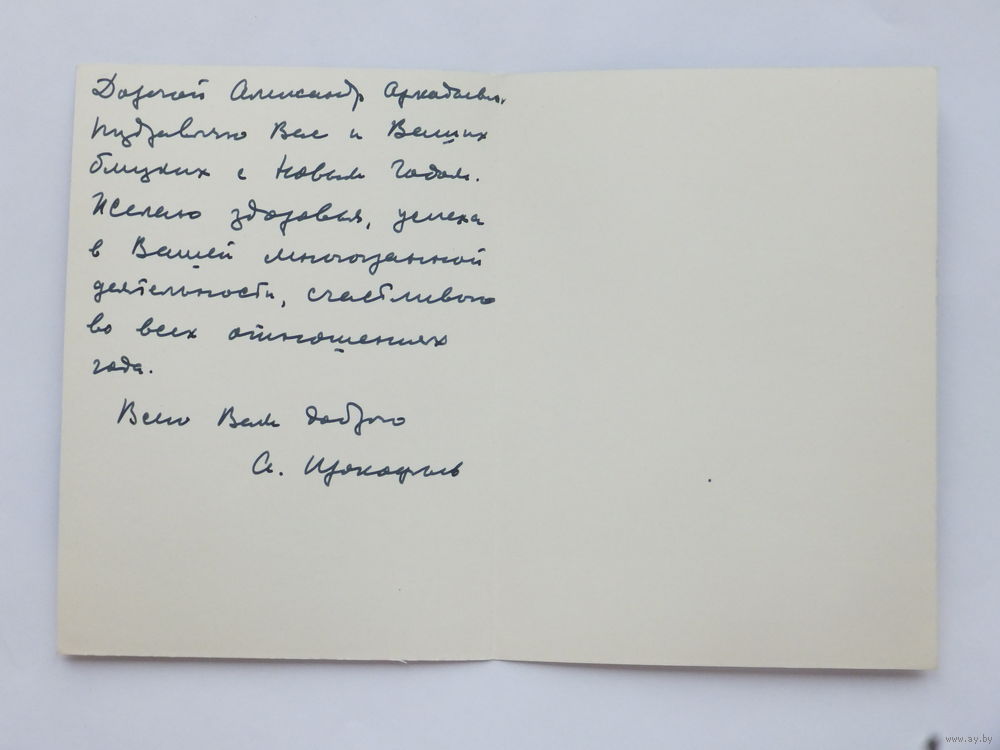 Дорогой Александр Аркадьевич,
Поздравляю Вас и Ваших
близких с Новым Годом.
Желаю здоровья, успеха
в Вашей многогранной
деятельности, счастливого
во всех отношениях
года.
Всего Вам доброго
А. Прокофьев
www.ay.by